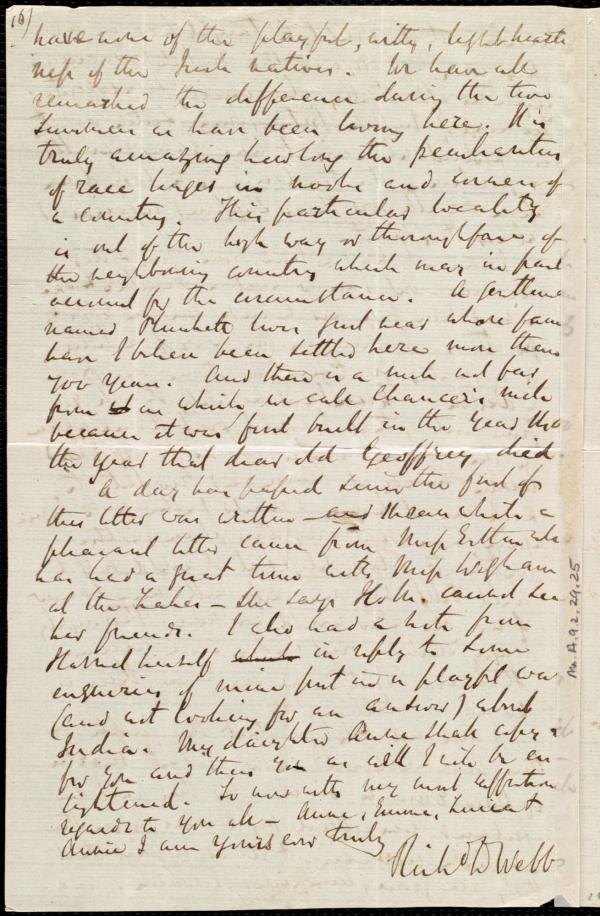 (6)
have none of the playful, witty, light hearted
ness of the Irish natives. We have all
remarked the difference during the two
summers we have been living here. It is
truly amazing how long the peculiarities
of race linger in nooks and corners of
a country. This particular locality
is out of the high way or thoroughfare of
the neighbouring country which may in part
account for the circumstance. A gentleman
named Plunkett lives just near whose fam
have I believe been settled here more than
700 years. And there is a mile not far
from us which we call Chancer's mile
because it was first built in the year 1400
the year that dear old Geoffrey died.
A day has passed since the first of
this letter was written - and Meanwhile a
pleasant letter came from Miss Estlin who
has had a great time with Miss Wigham
at the Lakes - She says H. M. cannot see
her friends. I also had a note from
Harriet herself which in reply to some
enquiries of mine put in a playful way
(and not looking for an answer) about
India. My daughter Anne shall copy it
for you and then you as well I will be en-
lightened. So now with my most affectionate
regards to you all - Anne, Emma, Lucia &
Annie I am yours ever truly
Richd D Webb
Ms.A.9.2.29.25